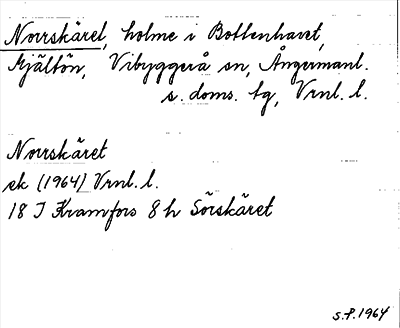 Norrskäret, holme i Bottenhavet,
Mjältön, Vibyggerå sn, Ångermanl.
s. doms. tg, Vrnl. l.
Norrskäret
ek (1964) Vrnl. l.
18 I Kramfors 8 h Sörskäret
S.P. 1964